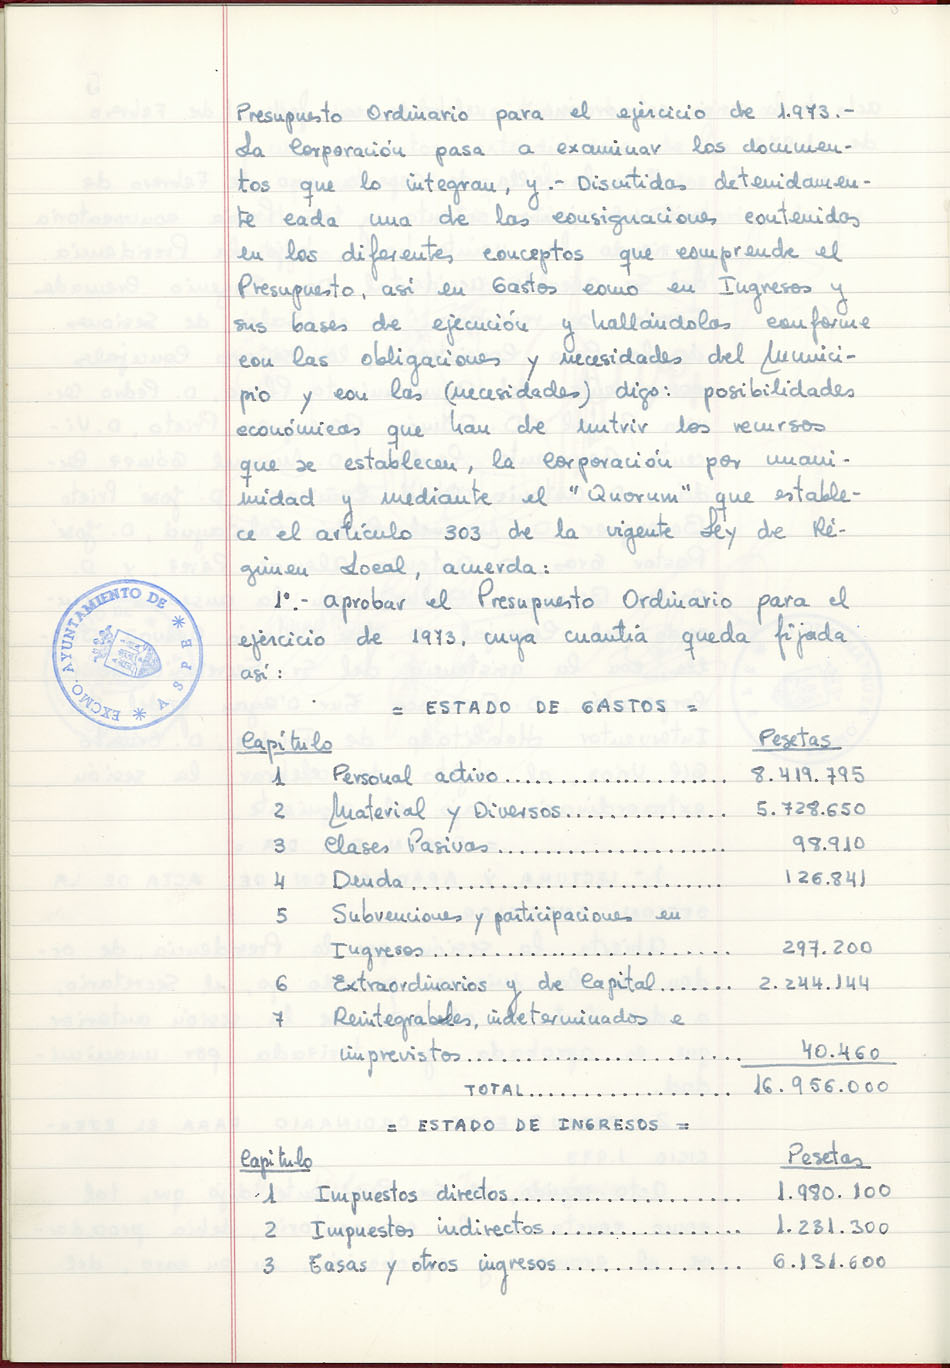 Presupuesto Ordinario para el ejercicio de 1.973.-
La Corporación pasa a examinar los documen-
tos que lo integran, y.- Discutidas detenidamen-
te cada una de las consignaciones contenidas
en los diferentes conceptos que comprende el
Presupuesto, así en Gastos como en Ingresos y
sus bases de ejecución y hallándolas conforme
con las obligaciones y necesidades del Munici-
pio y con las (necesidades) digo: posibilidades
económicas que han de nutrir los recursos
que se establecen, la Corporación por unani-
midad y mediante el "Quorum" que estable-
ce el artículo 303 de la vigente Ley de Ré-
gimen Local, acuerda:
1º.- aprobar el Presupuesto Ordinario para el
ejercicio de 1973, cuya cuantía queda fijada
así:
EXCMO. AYUNTAMIENTO DE * ASPE *
= ESTADO DE GASTOS =
Capítulo Pesetas
1 Personal activo.................... 8.419.795
2 Material y Diversos.............. 5.728.650
3 Clases Pasivas.................... 98.910
4 Deuda........................... 126.841
5 Subvenciones y participaciones en
Ingresos.......................... 297.200
6 Extraordinarios y de Capital....... 2.244.144
7 Reintegrables, indeterminados e
imprevistos....................... 40.460
TOTAL.................. 16.956.000
= ESTADO DE INGRESOS =
Capítulo Pesetas
1 Impuestos directos.................... 1.980.100
2 Impuestos indirectos................. 1.231.300
3 Tasas y otros ingresos............... 6.131.600